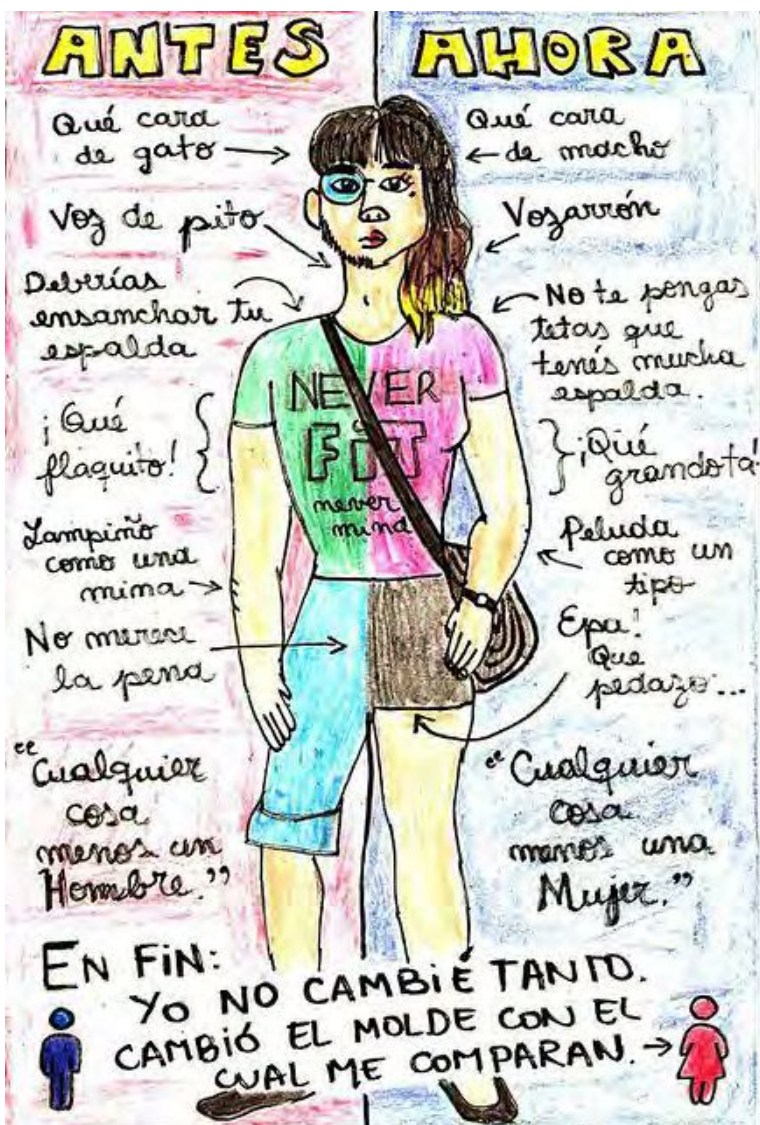 ANTES
AHORA
Qué cara
de gato
Voz de pito
Deberías
ensanchar tu
espalda
¡Qué
flaquito!
Lampiño
como una
mina
No merece
la pena
"Cualquier
cosa
menos un
Hombre."
Qué cara
de macho
Vozarrón
No te pongas
tetas que
tenés mucha
espalda.
¡Qué
grandota!
Peluda
como un
tipo
Epa!
Que
pedazo...
"Cualquier
cosa
menos una
Mujer."
NEVER
FiT
never
mind
EN FiN:
YO NO CAMBiÉ TANTO.
CAMBiÓ EL MOLDE CON EL
CUAL ME COMPARAN.